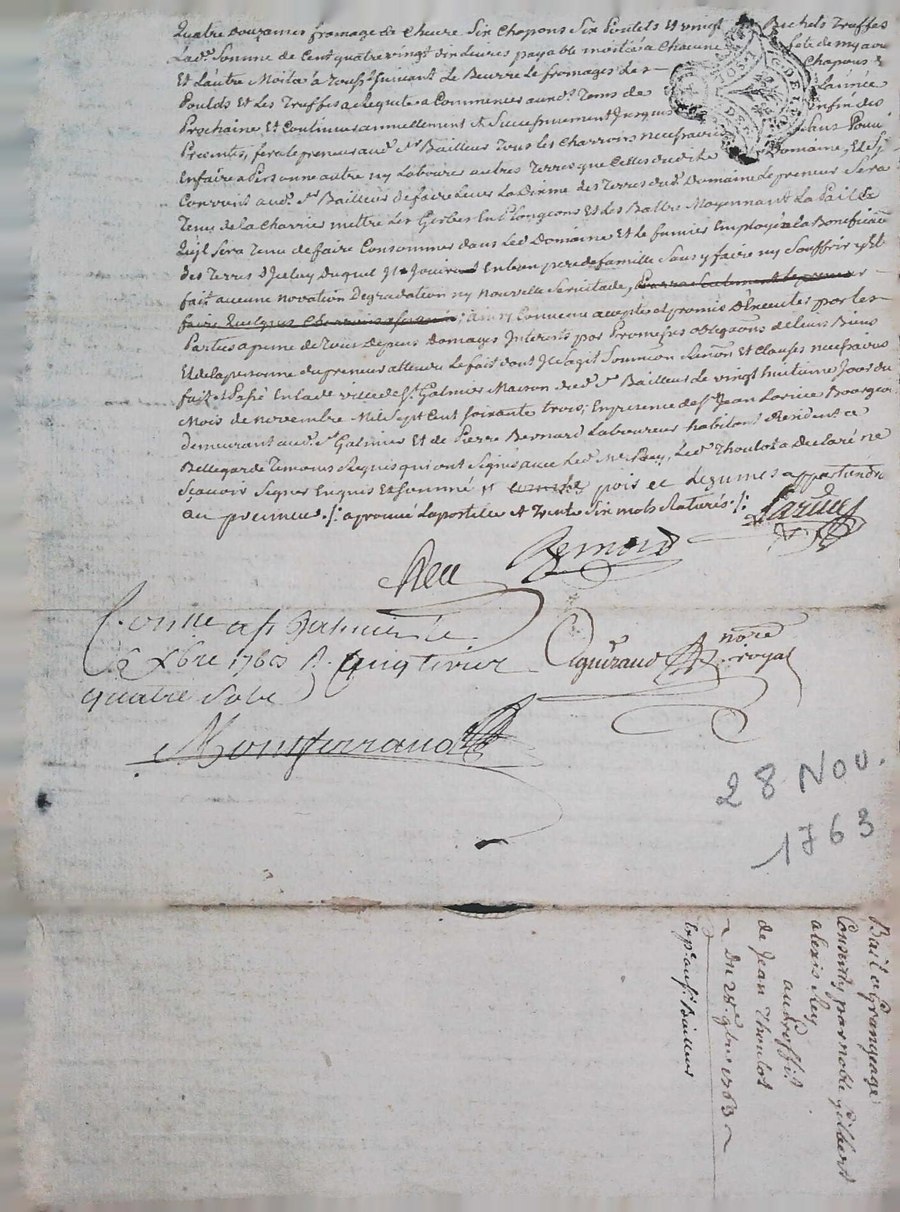 Quatre douzaines fromage de Chevre Six Chapons Six Poulets Et vingt Bichets Truffes
Lad.e Somme de Cent quatre vingt dix Livres payable moitié a Chacune fete de
Et Lautre Moitié à Touss.t Suivant Le Beurre Le fromages Les Chapons &
Poulds Et Les Truffes a Commencer aud.t Tems de Lannée
Prochaine Et Continuer annuellement & Successivement Jusques Enfin des
Presentes, fera Le preneur aud. Sr Bailleur Tous Les Charrois necessaires Sans Pouvoir
En faire a Personne autre ny Labourer autres Terres que Celles dudite Domaine, Et Sy
Convient aud. Sr Bailleur de faire Lever La Dixme des Terres dud. Domaine Le preneur Sera
Tenu de La Charrier mettre Les Gerbes En Plongeons Et Les Battre Moyennant La Paille
Quil Sera Tenu de faire Consommer dans Led. Domaine Et Le fumier Employé a La Bonification
des Terres D'Iceluy Duquel Il Jouira En bon pere de famille Sans y faire ny Souffrir y Et
fait aucune novation Degradation ny nouvelle Servitude,
faire Quelques Charrois ainsy Convenu accepté et promis D'Executer par Les
Parties a peine de Tous Depens Domages Interests par Promesses obligaons de Leurs Biens
Et de La personne du preneur attendu Le fait dont Il Sagit Soumion Renon Et Clauses necessaires
fait et Passé En Lad. ville de St Galmier Maison dud. Sr Bailleur Le vingt huitieme Jour du
Mois de novembre Mil Sept Cent Soixante trois; En presence de Sr Jean Larüe Bourgeois
demeurant aud. St Galmier Et de Pierre Bernard Laboureur habitant Resident a
Bellegarde Temoins Requis qui ont Signés avec Led. Mr Rey, Led. Thoulot a Declaré ne
Sçavoir Signer Enquis Et Sommé et pois et Legumes appartiendront
au preneur ./. aprouvé Lapostille & Trente Six mots Raturés ./.
Larüe
Rey Bernard
Conllé a St Galmier le
6 Xbre 1763 R. Cinq livres
quatre Sols
Aguiraud nore royal
Montferrand
28 NOV.
1763
Bail a Grangeage
Consenty par noble Gilbert
alexis Rey
au Proffit
de Jean Thoulot
~ Du 28e 9bre 1763 ~
Exp.on au Sr Bailleur